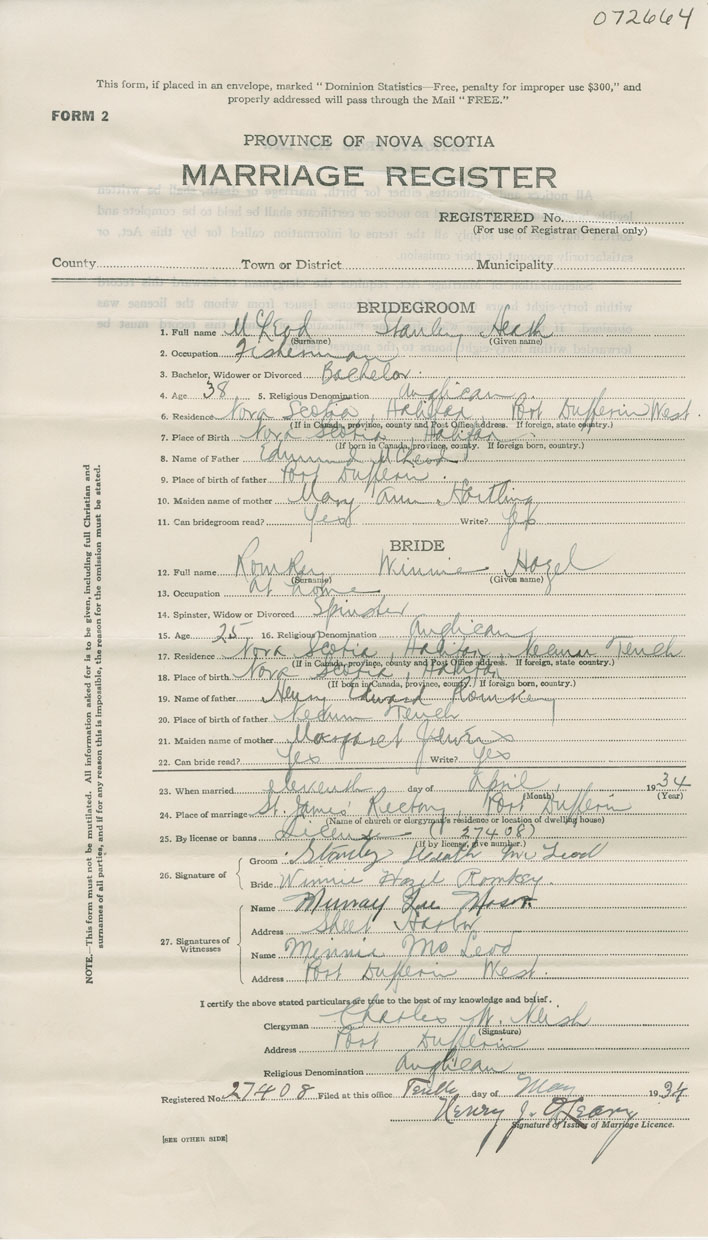 072664
This form, if placed in an envelope, marked "Dominion Statistics—Free, penalty for improper use $300," and
properly addressed will pass through the Mail "FREE."
FORM 2
PROVINCE OF NOVA SCOTIA
MARRIAGE REGISTER
REGISTERED No.
(For use of Registrar General only)
County Town or District Municipality
BRIDEGROOM
1. Full name McLeod Stanley Heath
(Surname) (Given name)
2. Occupation Fisherman
3. Bachelor, Widower or Divorced Bachelor.
4. Age 38 5. Religious Denomination Anglican
6. Residence Nova Scotia, Halifax, Port Dufferin West.
(If in Canada, province, county and Post Office address. If foreign, state country.)
7. Place of Birth Nova Scotia, Halifax
(If born in Canada, province, county. If foreign born, country.)
8. Name of Father Edmund McLeod
9. Place of birth of father Port Dufferin.
10. Maiden name of mother Mary Ann Hartling
11. Can bridegroom read? Yes Write? Yes
BRIDE
12. Full name Romkey Winnie Hazel
(Surname) (Given name)
13. Occupation At home
14. Spinster, Widow or Divorced Spinster
15. Age 25 16. Religious Denomination Anglican
17. Residence Nova Scotia, Halifax,
(If in Canada, province, county and Post Office address. If foreign, state country.)
18. Place of birth Nova Scotia, Halifax
(If born in Canada, province, county. If foreign born, country.)
19. Name of father Edward Romkey
20. Place of birth of father
21. Maiden name of mother Margaret
22. Can bride read? Yes Write? Yes
23. When married eleventh day of April, 1934
(Month) (Year)
24. Place of marriage St. James' Rectory, Port Dufferin
(Name of church or clergyman's residence or location of dwelling house)
25. By license or banns License (27408)
(If by license, give number.)
26. Signature of
Groom Stanley Heath McLeod
Bride Winnie Hazel Romkey.
27. Signatures of Witnesses
Name Murray Mason
Address Sheet Harbor
Name Minnie McLeod
Address Port Dufferin West.
I certify the above stated particulars are true to the best of my knowledge and belief.
Clergyman Charles W. Neish
(Signature)
Address Port Dufferin
Religious Denomination Anglican
Registered No. 27408 Filed at this office Tenth day of May 1934
Henry J. O'Leary
Signature of Issuer of Marriage Licence.
[SEE OTHER SIDE]
NOTE.—This form must not be mutilated. All information asked for is to be given, including full Christian and
surnames of all parties, and if for any reason this is impossible, the reason for the omission must be stated.